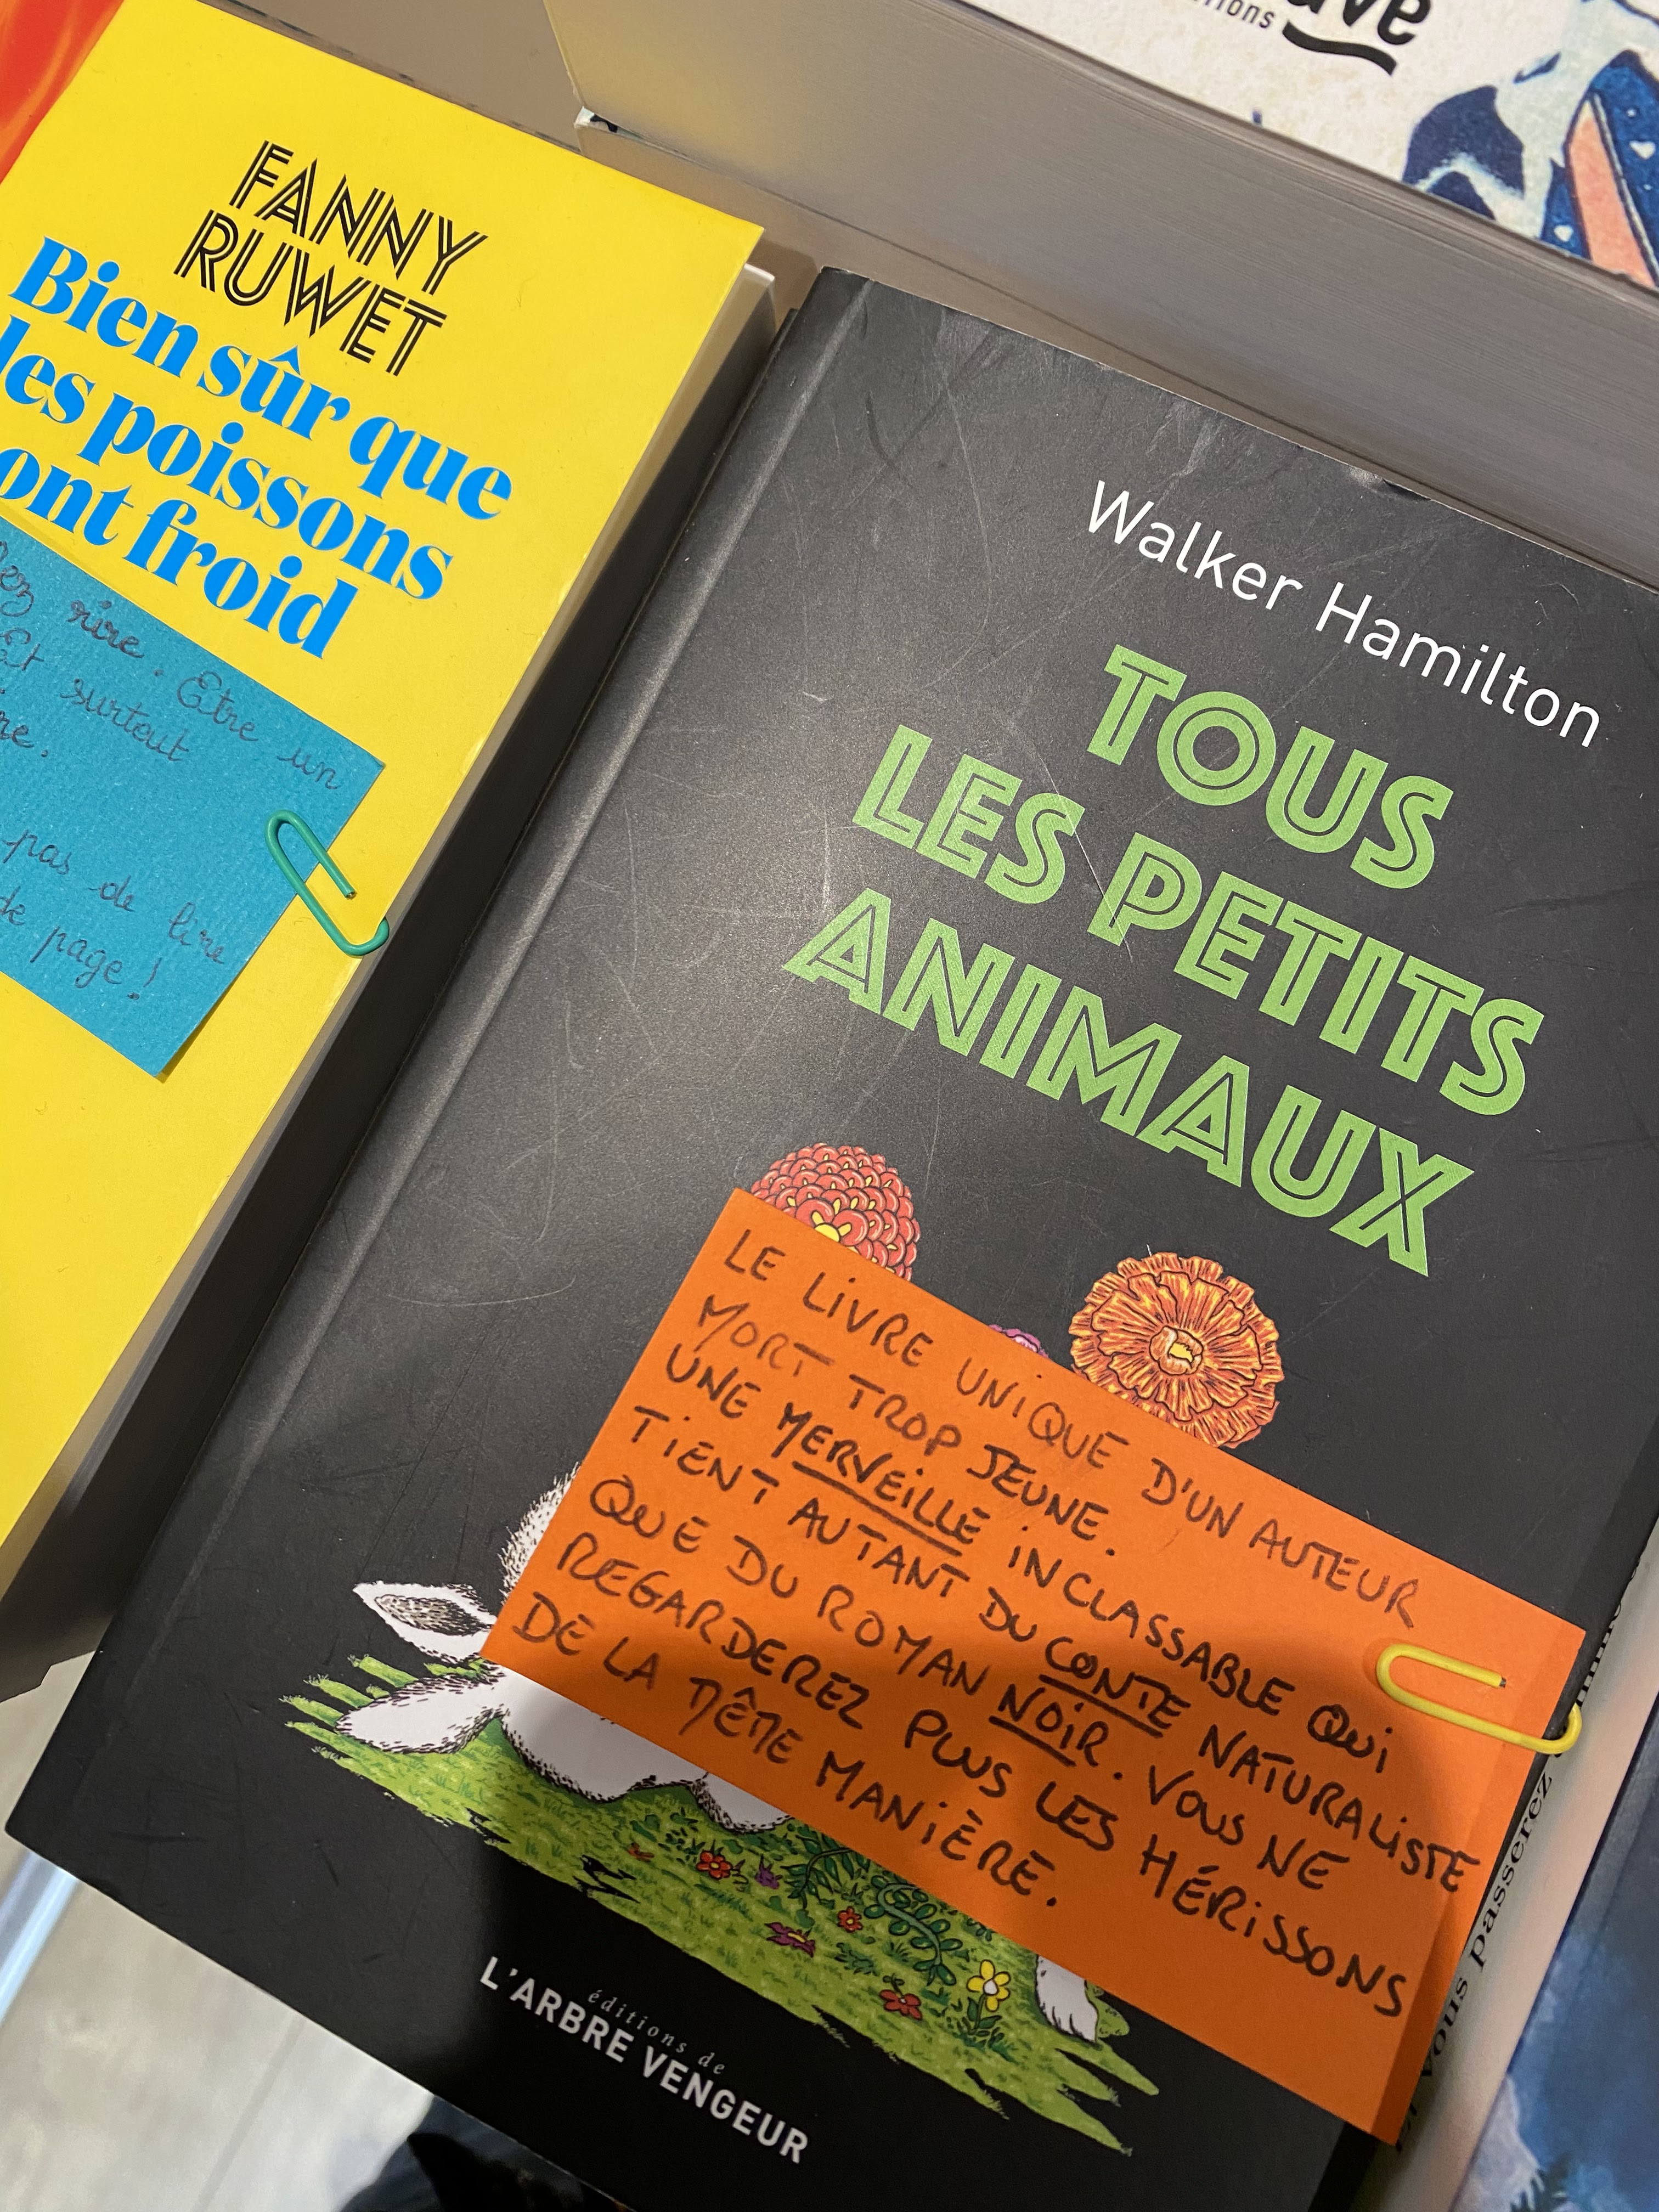 FANNY
RUWET
Bien sûr que
les poissons
ont froid
rire. Etre un
Et surtout
pas de lire
de page !
Walker Hamilton
TOUS
LES PETITS
ANIMAUX
LE LIVRE UNIQUE D'UN AUTEUR
MORT TROP JEUNE.
UNE MERVEILLE INCLASSABLE QUI
TIENT AUTANT DU CONTE NATURALISTE
QUE DU ROMAN NOIR. VOUS NE
REGARDEREZ PLUS LES HÉRISSONS
DE LA MÊME MANIÈRE.
éditions de
L'ARBRE VENGEUR
vous passerez